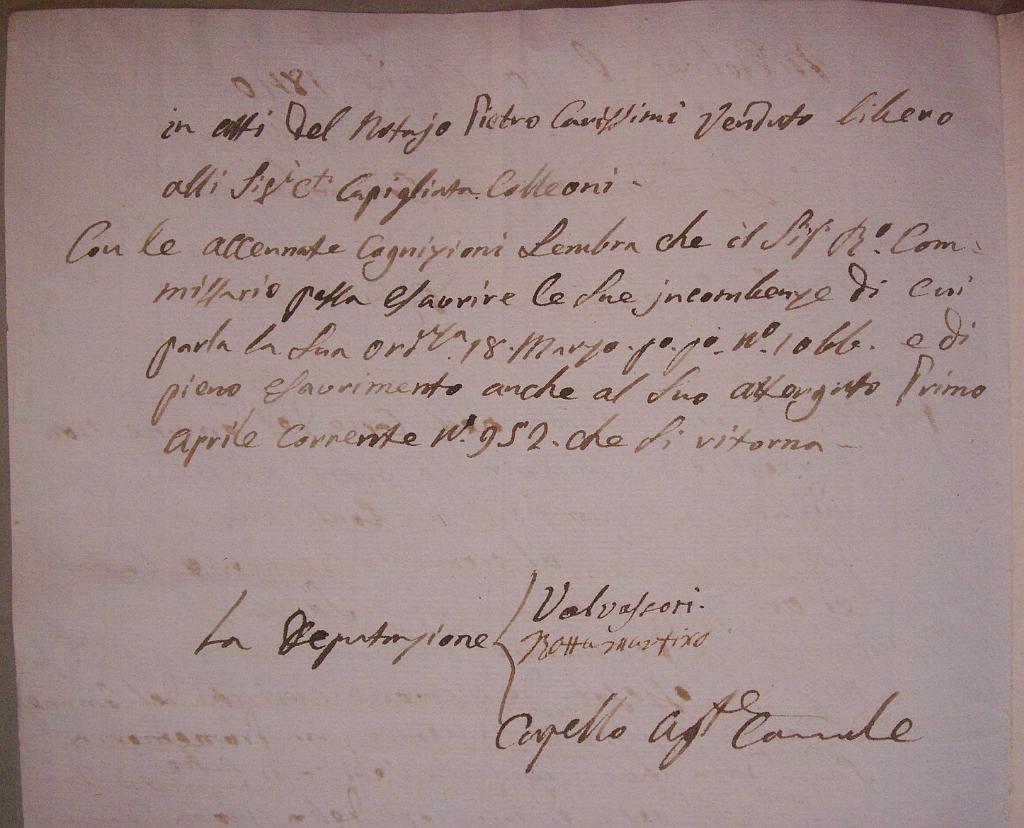 in atti del Notajo Pietro Carissimi Venduto libero
alli Sig.ri Cti Capigliata Colleoni -
Con le accennate Cognizioni Sembra che il Sig.r R.o Com-
missario possa esaurire le sue jncombenze di cui
parla la Sua 18. Marzo. po. po. N.o 1066. e di
pieno esaurimento anche al suo attergato Primo
Aprile Corrente N.o 952. che si ritorna -
La Deputazione
Valvassori.
Botta Martino
Capello Ag.te Comale